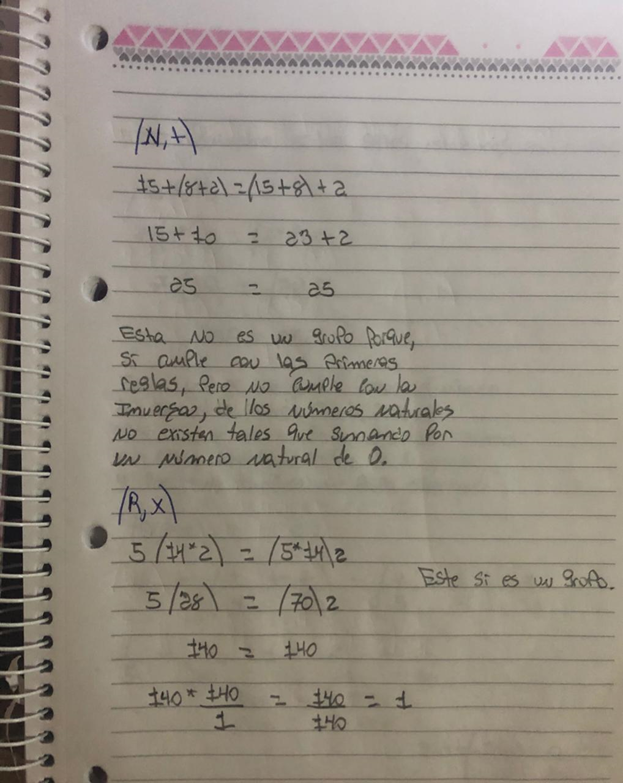 (N,+)
15+(8+2)=(15+8)+2
15+10 = 23+2
25 = 25
Esta NO es un grupo Porque,
Si cumple con las Primeras
reglas, Pero no cumple con la
Inversa, de los números naturales
NO existen tales que sumando Por
un número natural de 0.
(R,x)
5(14*2) = (5*14)2
Este si es un grupo.
5(28) = (70)2
140 = 140
140 * 140/1 = 140/140 = 1